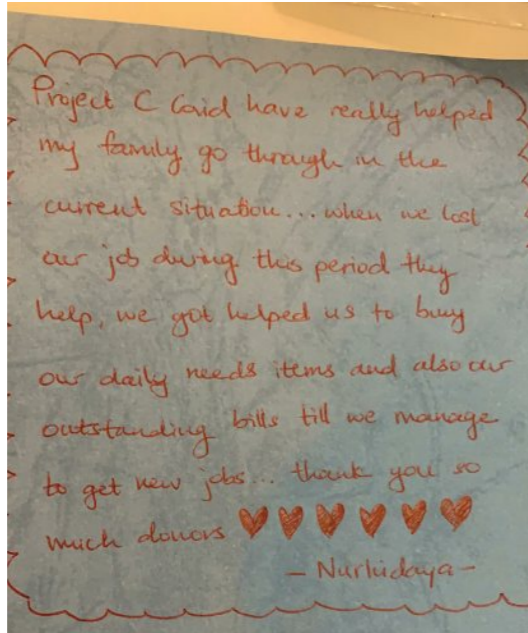 Project C Caid have really helped
my family go through in the
current situation... when we lost
our job during this period they
help, we got helped us to buy
our daily needs items and also our
outstanding bills till we manage
to get new jobs... thank you so
much donors ♥♥♥♥♥♥
- Nurhidaya -